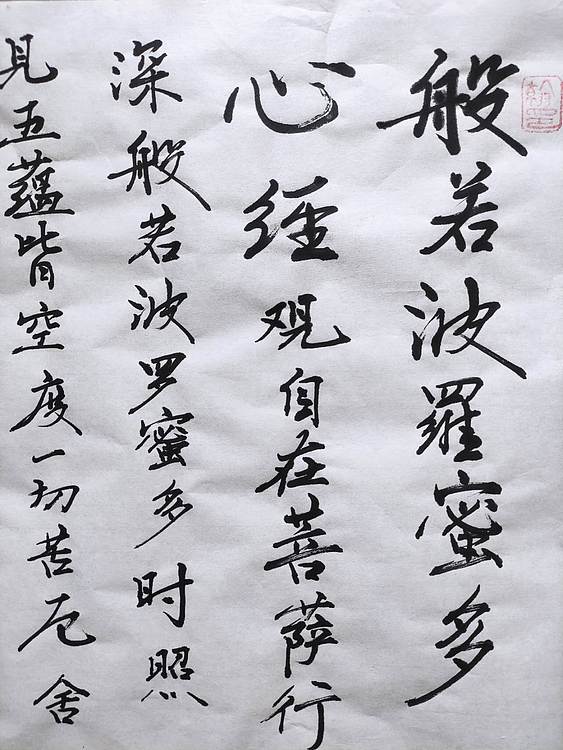 般若波羅蜜多
心经观自在菩萨行
深般若波罗蜜多时照
見五蕴皆空度一切苦厄舍